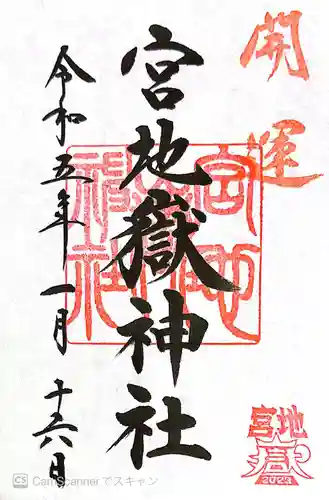 開運
宮地嶽神社
令和五年一月十六日
宮地
嶽
2023
CS CamScannerでスキャン